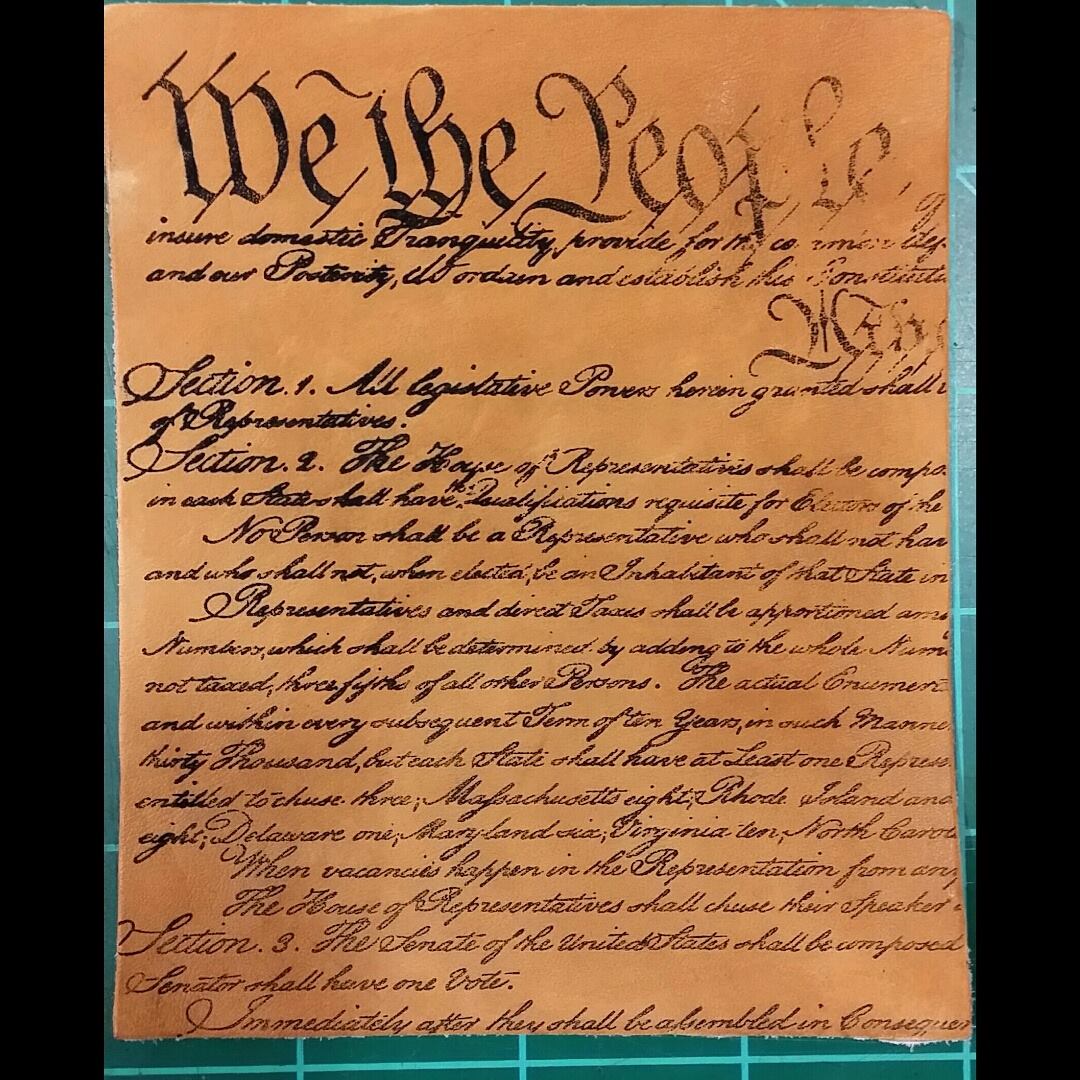 We the People
insure domestic Tranquility, provide for the common
and our Posterity, do ordain and establish this Constituti
Section. 1. All legislative Powers herein granted shall
of Representatives.
Section. 2. The House of Representatives shall be compo
in each State shall have the Qualifications requisite for Electors of the
No Person shall be a Representative who shall not hav
and who shall not, when elected, be an Inhabitant of that State in
Representatives and direct Taxes shall be apportioned amo
Numbers, which shall be determined by adding to the whole Num
not taxed, three fifths of all other Persons. The actual Enumer
and within every subsequent Term of ten Years, in such Manne
thirty Thousand, but each State shall have at Least one Repres
entitled to chuse three, Massachusetts eight, Rhode Island and
eight, Delaware one, Maryland six, Virginia ten, North Caro
When vacancies happen in the Representation from any
The House of Representatives shall chuse their Speaker
Section. 3. The Senate of the United States shall be composed
Senator shall have one Vote.
Immediately after they shall be assembled in Consequen